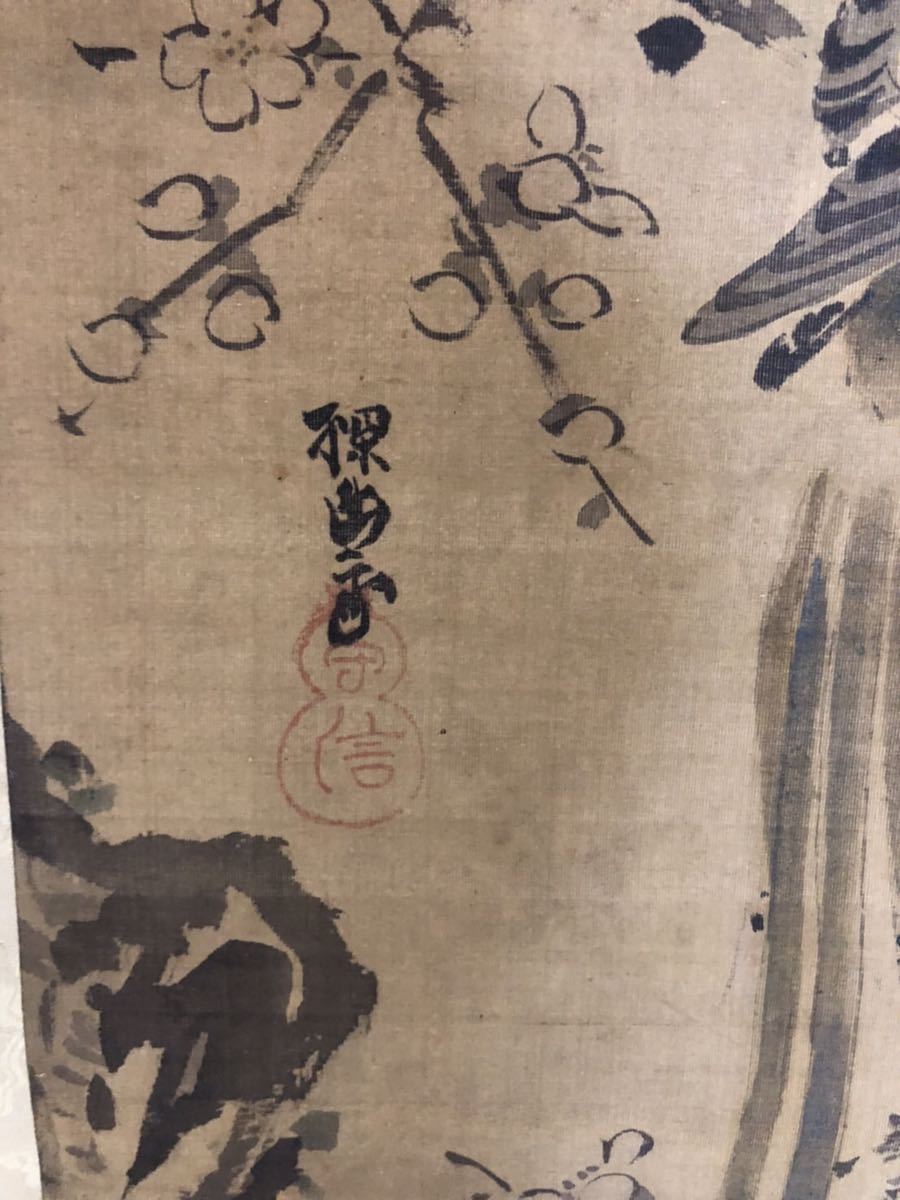 探幽斎
守信